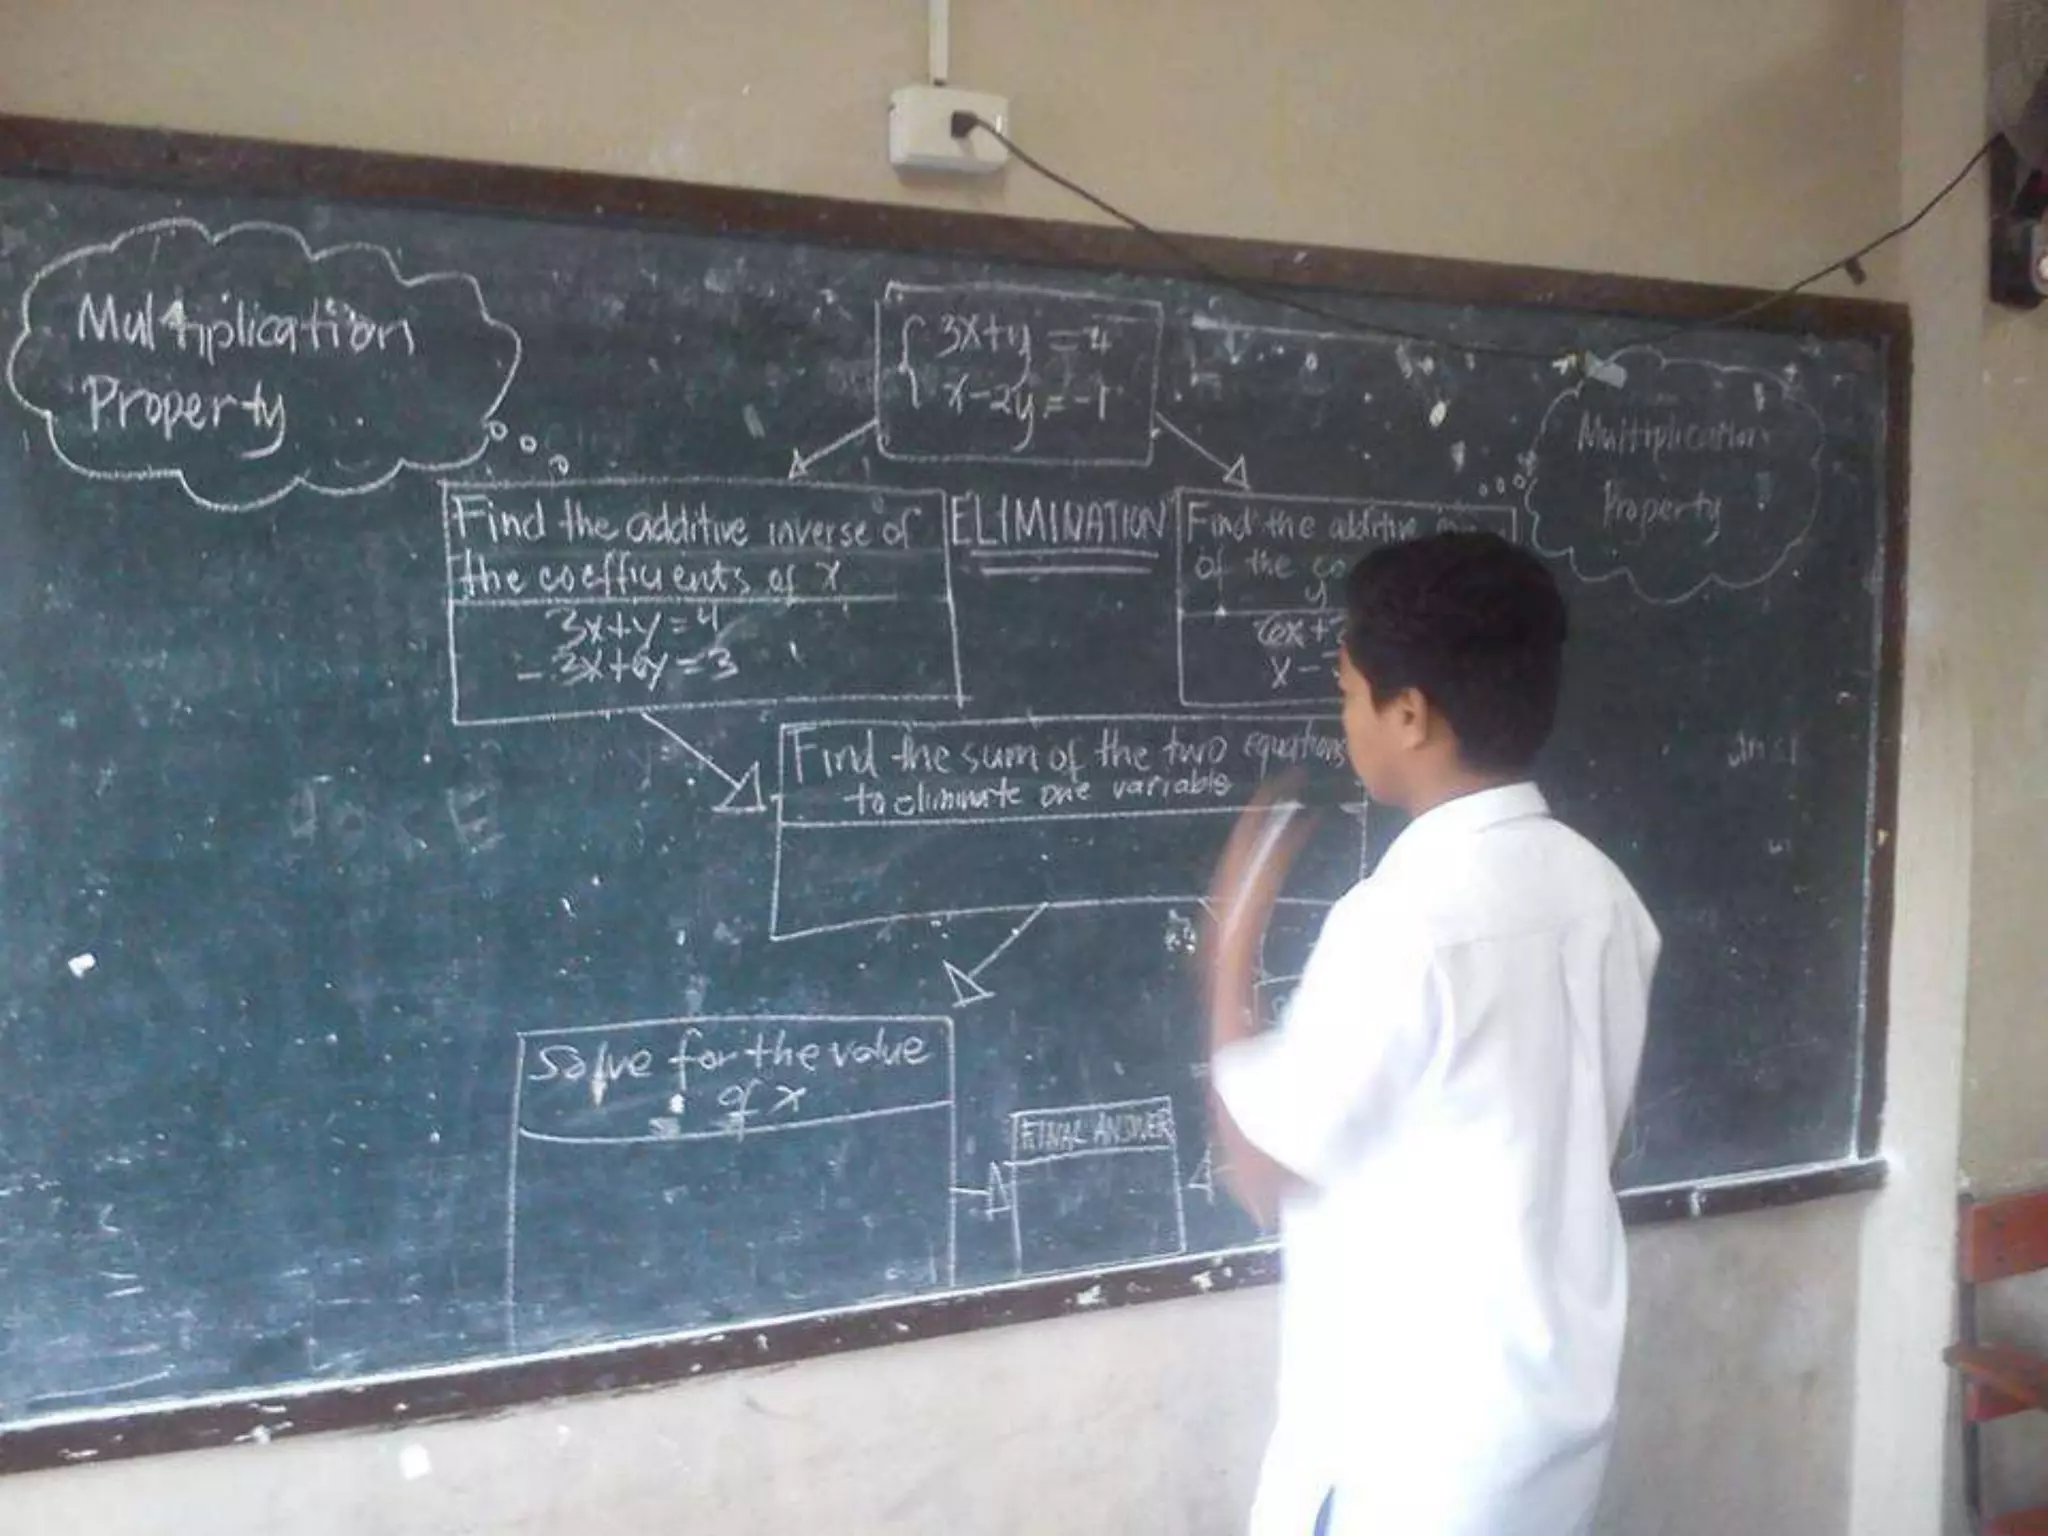 Multiplication
Property
3x+y=4
x-2y=-1
Multiplication
Property
Find the additive inverse of
the coefficients of x
3x+y=4
-3x+6y=3
ELIMINATION
Find the additive
of the
y
6x+
x-
Find the sum of the two equations
to eliminate one variable
Solve for the value
of x
FINAL ANSWER